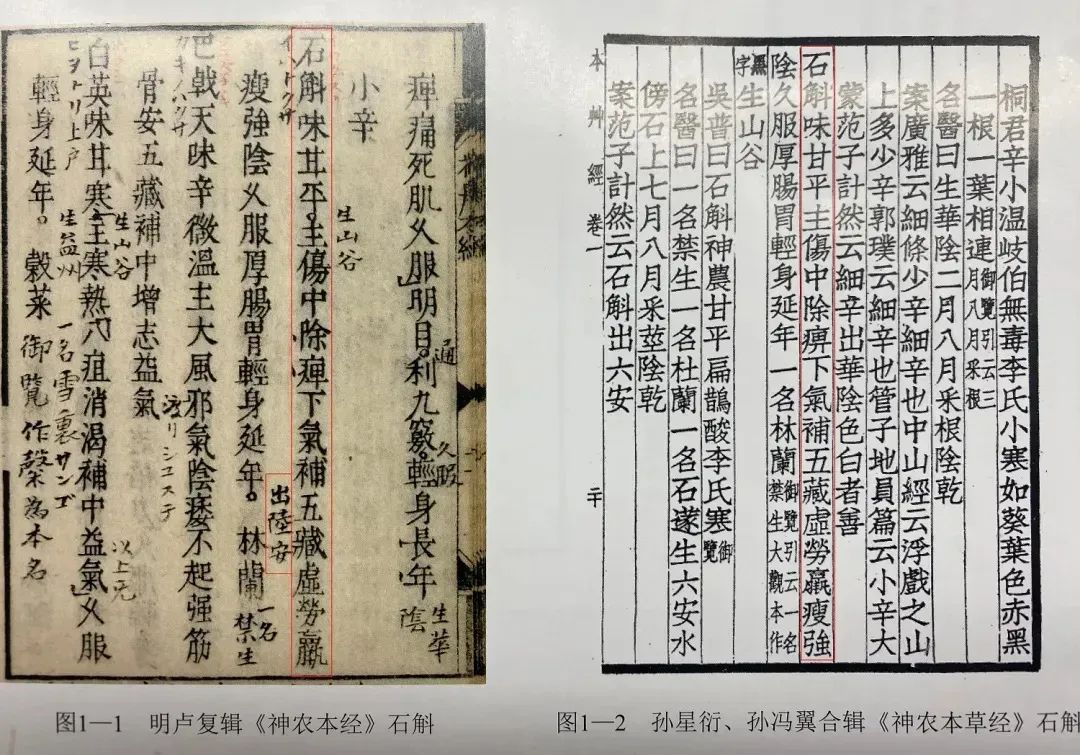 痺痛死肌久服明目。利九竅。輕身長年
通
久服
生華陰
小辛
生山谷
石斛味甘平。主傷中除痺下氣補五藏虛勞羸
瘦強陰久服厚腸胃輕身延年。林蘭
出陸安
一名禁生
巴戟天味辛微溫主大風邪氣陰痿不起强筋
骨安五藏補中增志益氣
白英味甘寒主寒熱八疽消渴補中益氣久服
生山谷
以上元
輕身延年。穀菜
生益州
一名雪裏サンゴ
ヒヲトリ上戸
桐君辛小溫岐伯無毒李氏小寒如葵葉色赤黑
一根一葉相連御覽引云三月八月采根
名醫曰生華陰二月八月采根陰乾
案廣雅云細條少辛細辛也中山經云浮戲之山
上多少辛郭璞云細辛也管子地員篇云小辛大
蒙范子計然云細辛出華陰色白者善
石斛味甘平主傷中除痹下氣補五藏虛勞羸瘦強
陰久服厚腸胃輕身延年一名林蘭御覽引云一名禁生大觀本作
黑字生山谷
吳普曰石斛神農甘平扁鵲酸李氏寒御覽
名醫曰一名禁生一名杜蘭一名石蓫生六安水
傍石上七月八月采莖陰乾
案范子計然云石斛出六安
本艸經 卷一 二十
图1—1 明卢复辑《神农本经》石斛
图1—2 孙星衍、孙冯翼合辑《神农本草经》石斛